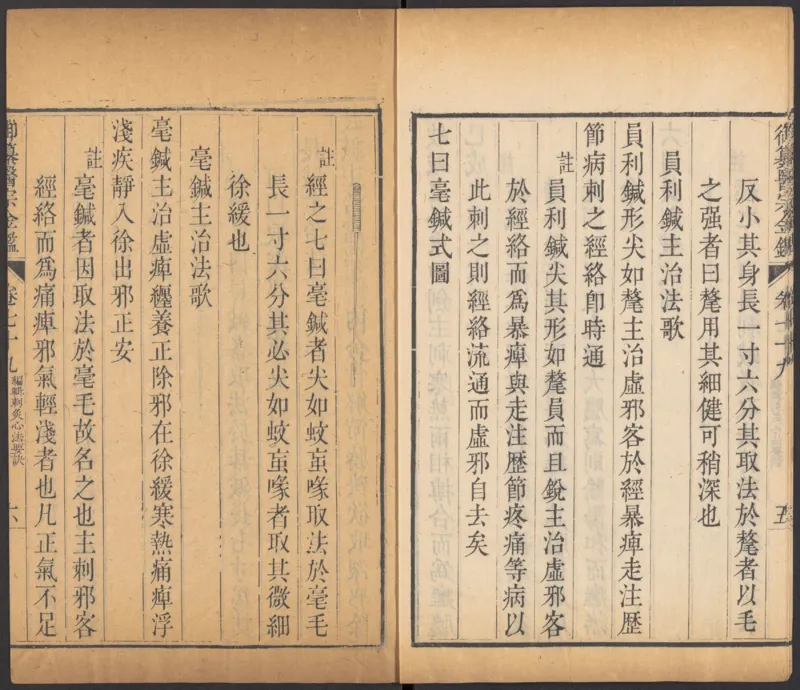 御纂醫宗金鑑 卷七十九 五
反小其身長一寸六分其取法於氂者以毛
之强者曰氂用其細健可稍深也
員利鍼主治法歌
員利鍼形尖如氂主治虛邪客於經暴痺走注歷
節病刺之經絡卽時通
註 員利鍼尖其形如氂員而且銳主治虛邪客
於經絡而爲暴痺與走注歷節疼痛等病以
此刺之則經絡流通而虛邪自去矣
七曰毫鍼式圖
註 經之七曰毫鍼者尖如蚊䖟喙取法於毫毛
長一寸六分其必尖如蚊䖟喙者取其微細
徐緩也
毫鍼主治法歌
毫鍼主治虛痺纏養正除邪在徐緩寒熱痛痺浮
淺疾靜入徐出邪正安
註 毫鍼者因取法於毫毛故名之也主刺邪客
經絡而爲痛痺邪氣輕淺者也凡正氣不足
御纂醫宗金鑑 卷七十九 編輯刺灸心法要訣 六